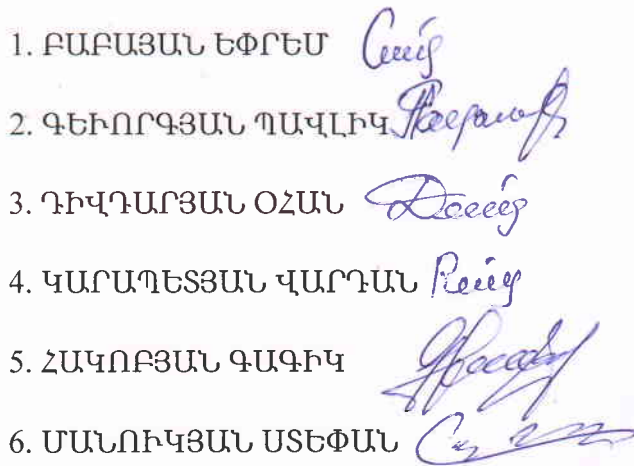 1. ԲԱԲԱՅԱՆ ԵՓՐԵՄ
2. ԳԵՒՈՐԳՅԱՆ ՊԱՎԼԻԿ
3. ԴԻՎԴԱՐՅԱՆ ՕՀԱՆ
4. ԿԱՐԱՊԵՏՅԱՆ ՎԱՐԴԱՆ
5. ՀԱԿՈԲՅԱՆ ԳԱԳԻԿ
6. ՄԱՆՈՒԿՅԱՆ ՍՏԵՓԱՆ